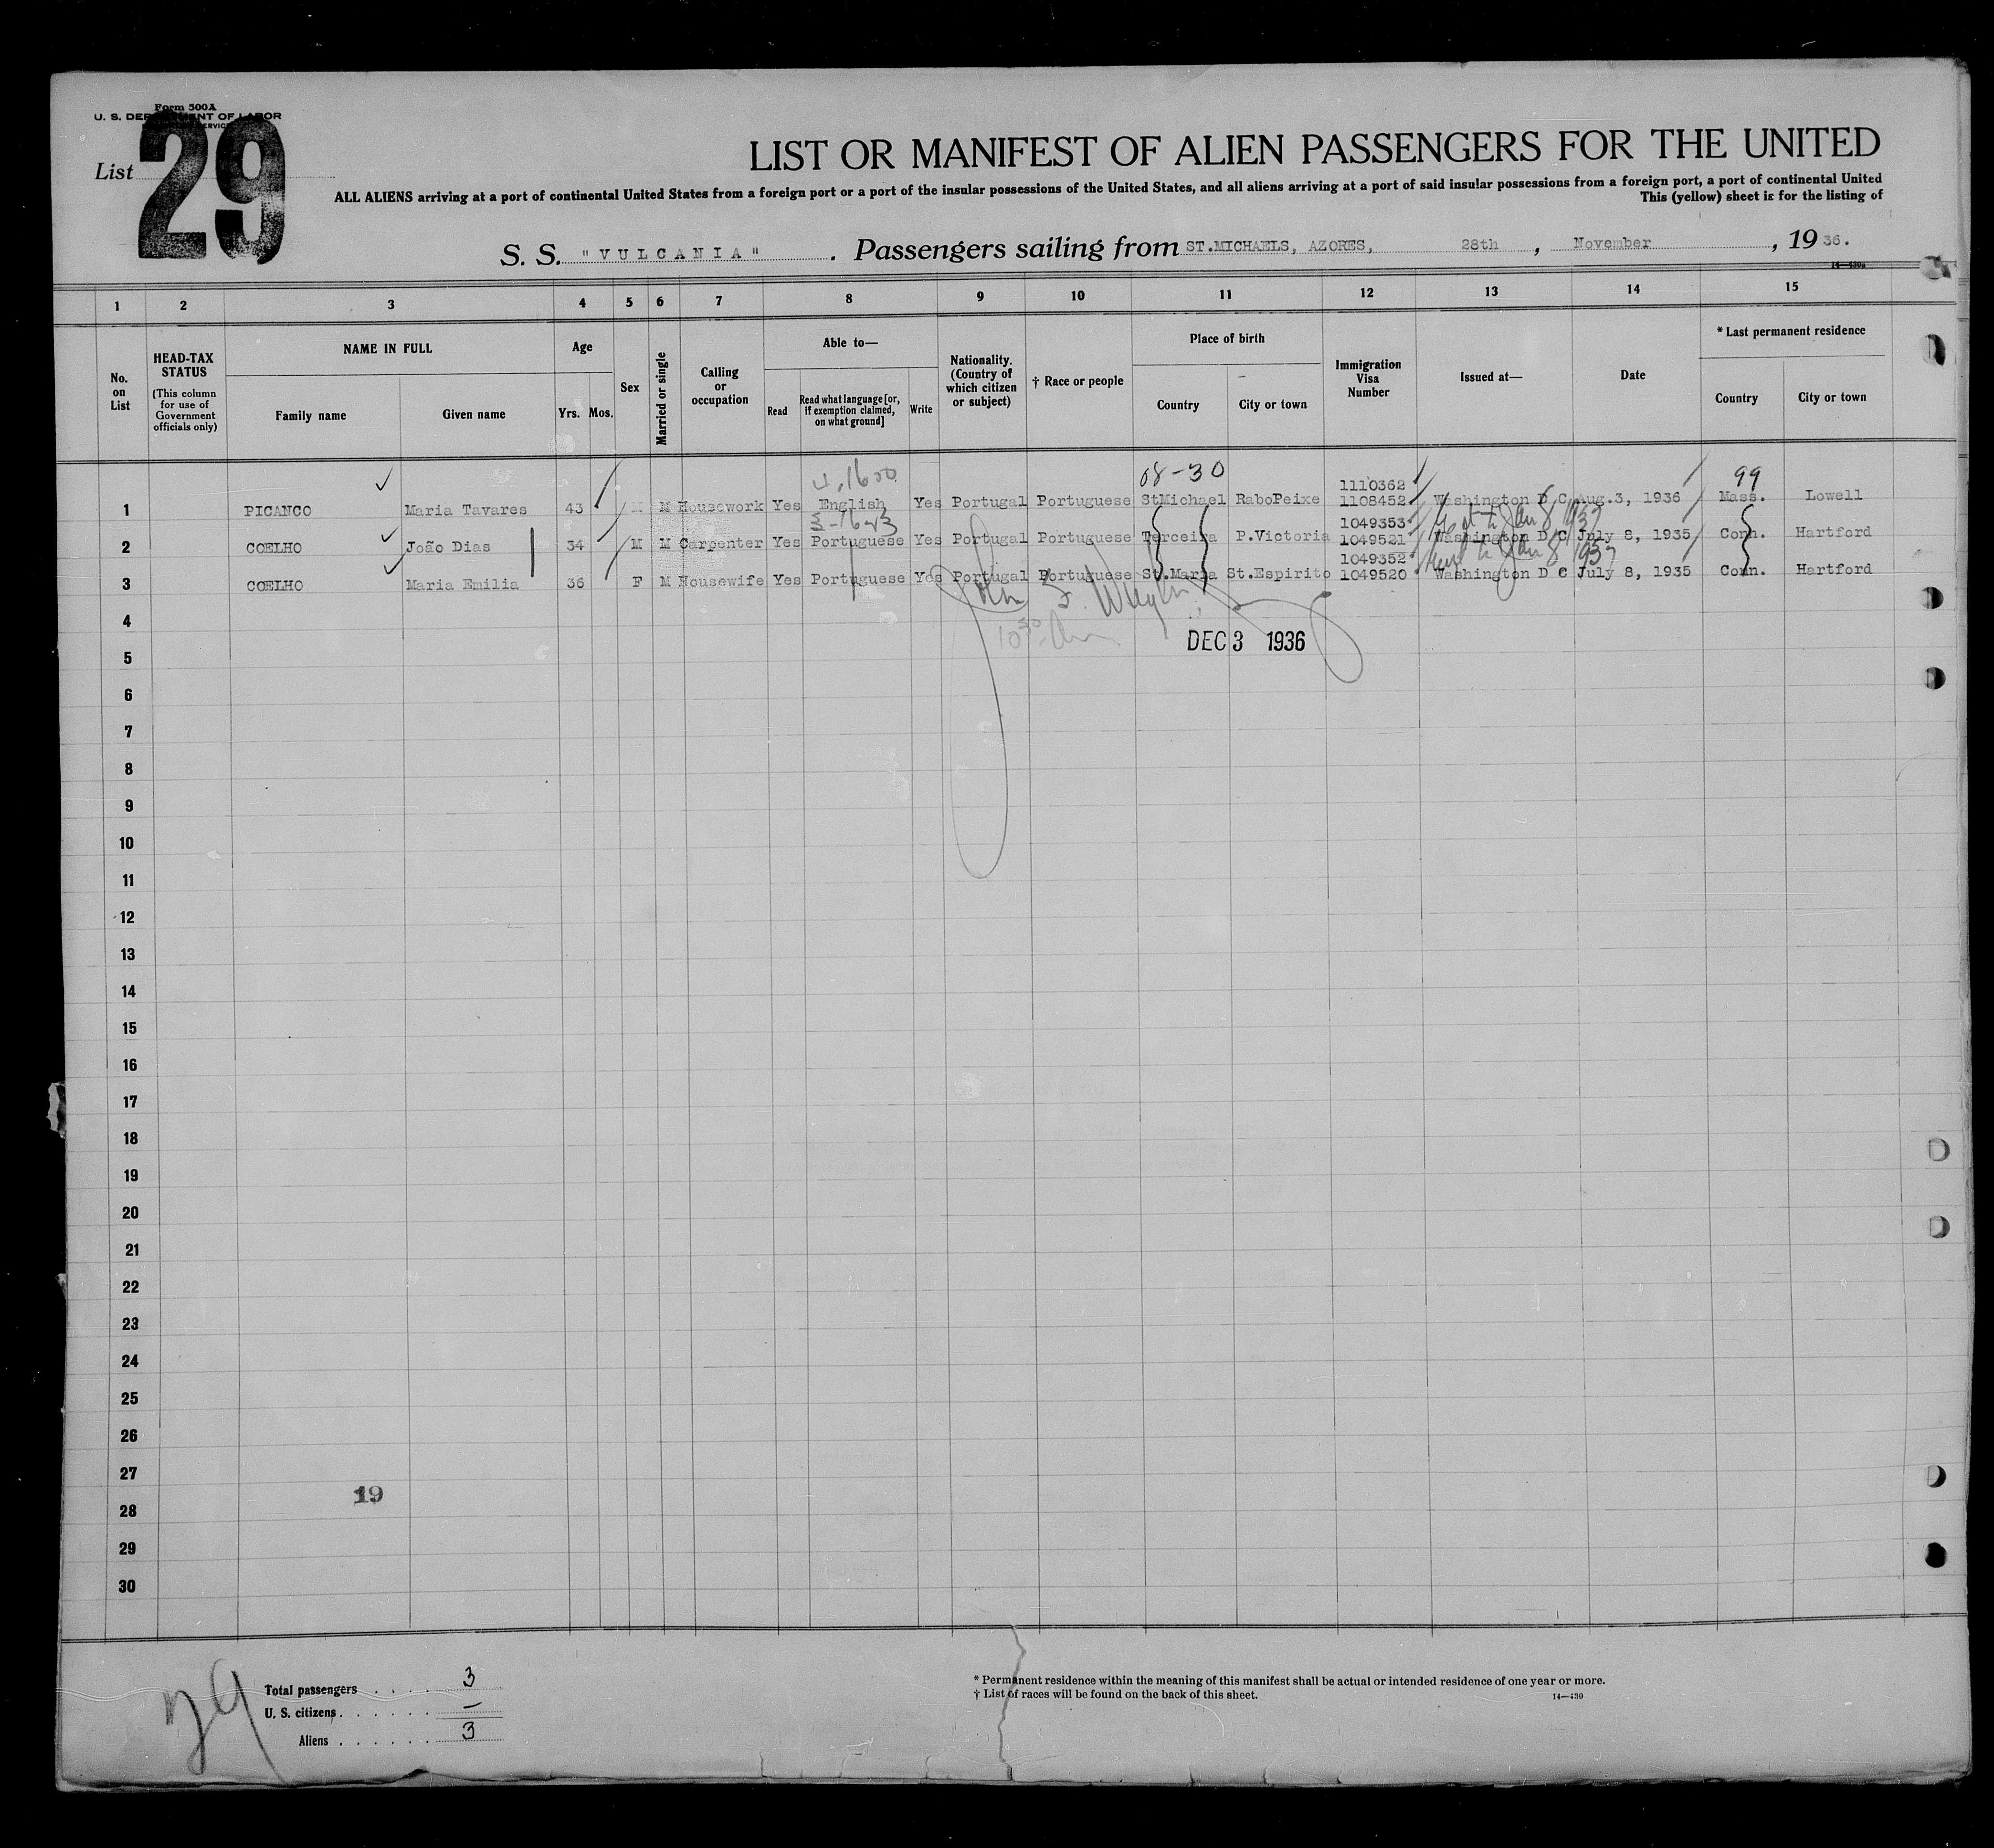 Form 500A
U. S. DEPARTMENT OF LABOR
List 29
LIST OR MANIFEST OF ALIEN PASSENGERS FOR THE UNITED
ALL ALIENS arriving at a port of continental United States from a foreign port or a port of the insular possessions of the United States, and all aliens arriving at a port of said insular possessions from a foreign port, a port of continental United
This (yellow) sheet is for the listing of
S. S. "VULCANIA" . Passengers sailing from ST.MICHAELS, AZORES, 28th , November , 1936.
14—430a
1 2 3 4 5 6 7 8 9 10 11 12 13 14 15
No. on List
HEAD-TAX STATUS
(This column for use of Government officials only)
NAME IN FULL
Family name
Given name
Age
Yrs. Mos.
Sex
Married or single
Calling or occupation
Able to—
Read
Read what language [or, if exemption claimed, on what ground]
Write
Nationality. (Country of which citizen or subject)
† Race or people
Place of birth
Country
City or town
Immigration Visa Number
Issued at—
Date
* Last permanent residence
Country
City or town
08-30
99
1110362
1 PICANCO Maria Tavares 43 M Housework Yes English Yes Portugal Portuguese StMichael RaboPeixe 1108452 Washington D C Aug.3, 1936 Mass. Lowell
1049353
2 COELHO João Dias 34 M M Carpenter Yes Portuguese Yes Portugal Portuguese Terceira P.Victoria 1049521 Washington D C July 8, 1935 Conn. Hartford
1049352
3 COELHO Maria Emilia 36 F M Housewife Yes Portuguese Yes Portugal Portuguese St.Maria St.Espirito 1049520 Washington D C July 8, 1935 Conn. Hartford
4
DEC 3 1936
5
6
7
8
9
10
11
12
13
14
15
16
17
18
19
20
21
22
23
24
25
26
27
19
28
29
30
29
Total passengers 3
U. S. citizens —
Aliens 3
* Permanent residence within the meaning of this manifest shall be actual or intended residence of one year or more.
† List of races will be found on the back of this sheet.
14—430